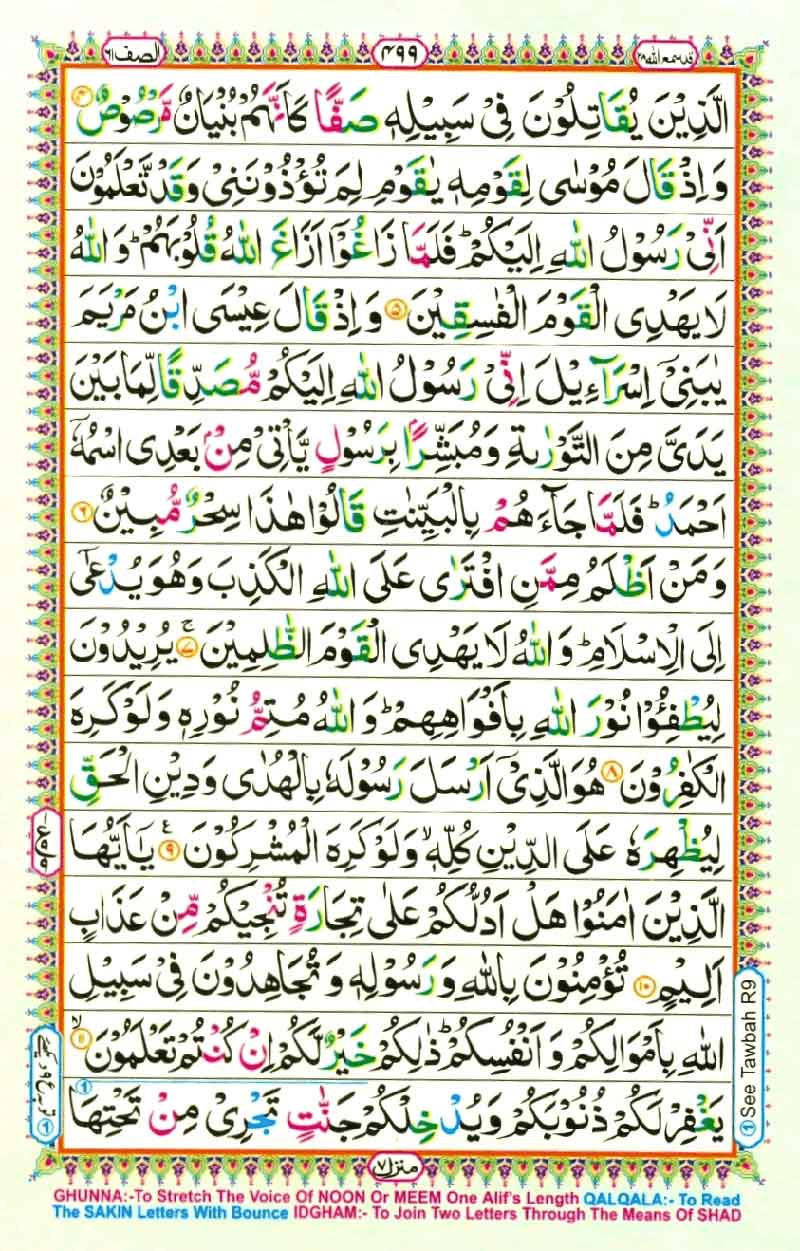 قد سمع الله ٢٨
٤٩٩
الصف ٦١
الَّذِيْنَ يُقَاتِلُوْنَ فِيْ سَبِيْلِهٖ صَفًّا كَاَنَّهُمْ بُنْيَانٌ مَّرْصُوْصٌ ﴿۴﴾
وَاِذْ قَالَ مُوْسٰى لِقَوْمِهٖ يٰقَوْمِ لِمَ تُؤْذُوْنَنِيْ وَقَدْ تَّعْلَمُوْنَ
اَنِّيْ رَسُوْلُ اللّٰهِ اِلَيْكُمْ ؕ فَلَمَّا زَاغُوْۤا اَزَاغَ اللّٰهُ قُلُوْبَهُمْ ؕ وَاللّٰهُ
لَا يَهْدِى الْقَوْمَ الْفٰسِقِيْنَ ﴿۵﴾ وَاِذْ قَالَ عِيْسَى ابْنُ مَرْيَمَ
يٰبَنِيْۤ اِسْرَآءِيْلَ اِنِّيْ رَسُوْلُ اللّٰهِ اِلَيْكُمْ مُّصَدِّقًا لِّمَا بَيْنَ
يَدَيَّ مِنَ التَّوْرٰىةِ وَمُبَشِّرًۢا بِرَسُوْلٍ يَّاْتِيْ مِنْۢ بَعْدِى اسْمُهٗۤ
اَحْمَدُ ؕ فَلَمَّا جَآءَهُمْ بِالْبَيِّنٰتِ قَالُوْا هٰذَا سِحْرٌ مُّبِيْنٌ ﴿۶﴾
وَمَنْ اَظْلَمُ مِمَّنِ افْتَرٰى عَلَى اللّٰهِ الْكَذِبَ وَهُوَ يُدْعٰۤى
اِلَى الْاِسْلَامِ ؕ وَاللّٰهُ لَا يَهْدِى الْقَوْمَ الظّٰلِمِيْنَ ۚ﴿۷﴾ يُرِيْدُوْنَ
لِيُطْفِـُٔوْا نُوْرَ اللّٰهِ بِاَفْوَاهِهِمْ ؕ وَاللّٰهُ مُتِمُّ نُوْرِهٖ وَلَوْ كَرِهَ
الْكٰفِرُوْنَ ﴿۸﴾ هُوَ الَّذِيْۤ اَرْسَلَ رَسُوْلَهٗ بِالْهُدٰى وَدِيْنِ الْحَقِّ
لِيُظْهِرَهٗ عَلَى الدِّيْنِ كُلِّهٖ ۙ وَلَوْ كَرِهَ الْمُشْرِكُوْنَ ﴿۹﴾ يٰۤاَيُّهَا
الَّذِيْنَ اٰمَنُوْا هَلْ اَدُلُّكُمْ عَلٰى تِجَارَةٍ تُنْجِيْكُمْ مِّنْ عَذَابٍ
اَلِيْمٍ ﴿۱۰﴾ تُؤْمِنُوْنَ بِاللّٰهِ وَرَسُوْلِهٖ وَتُجَاهِدُوْنَ فِيْ سَبِيْلِ
اللّٰهِ بِاَمْوَالِكُمْ وَاَنْفُسِكُمْ ؕ ذٰلِكُمْ خَيْرٌ لَّكُمْ اِنْ كُنْتُمْ تَعْلَمُوْنَ ۙ﴿۱۱﴾
يَغْفِرْ لَكُمْ ذُنُوْبَكُمْ وَيُدْخِلْكُمْ جَنّٰتٍ تَجْرِيْ مِنْ تَحْتِهَا
① See Tawbah R9
منزل ۷
GHUNNA:-To Stretch The Voice Of NOON Or MEEM One Alif's Length QALQALA:- To Read
The SAKIN Letters With Bounce IDGHAM:- To Join Two Letters Through The Means Of SHAD